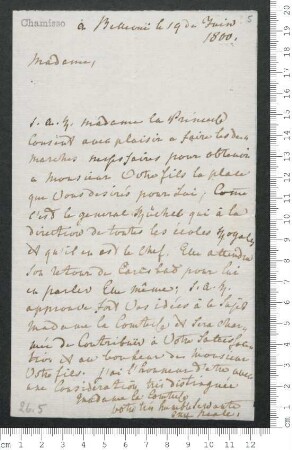 Chamisso
5
à Bellevue le 19 de Juin
1800.
Madame,
S. A. R. Madame la Princesse
consent avec plaisir a faire les de-
marches nessessaires pour obtenir
a monsieur Votre fils la place
que Vous desirés pour Lui; Come
c'est le general Rüchel qui à la
direction de toutes les ecoles Royales
et qu'il en est le chef. Elle attendra
son retour de pour lui
en parler Elle même; S. A. R.
approuve fort Vos idées à le Sujet
Madame la Comtesse et sera char-
mée de Contribuer à Votre Satisfa-
ction et au bonheur de monsieur
Votre fils. J'ai l'honneur d'etre avec
une Consideration très distinguée
Madame la Comtesse
votre très humble servante
26.5
cm 1 2 3 4 5 6 7 8 9 10 11 12
cm 1 2 3 4 5 6 7 8 9 10 11 12 13 14 15 16 17 18 19 20